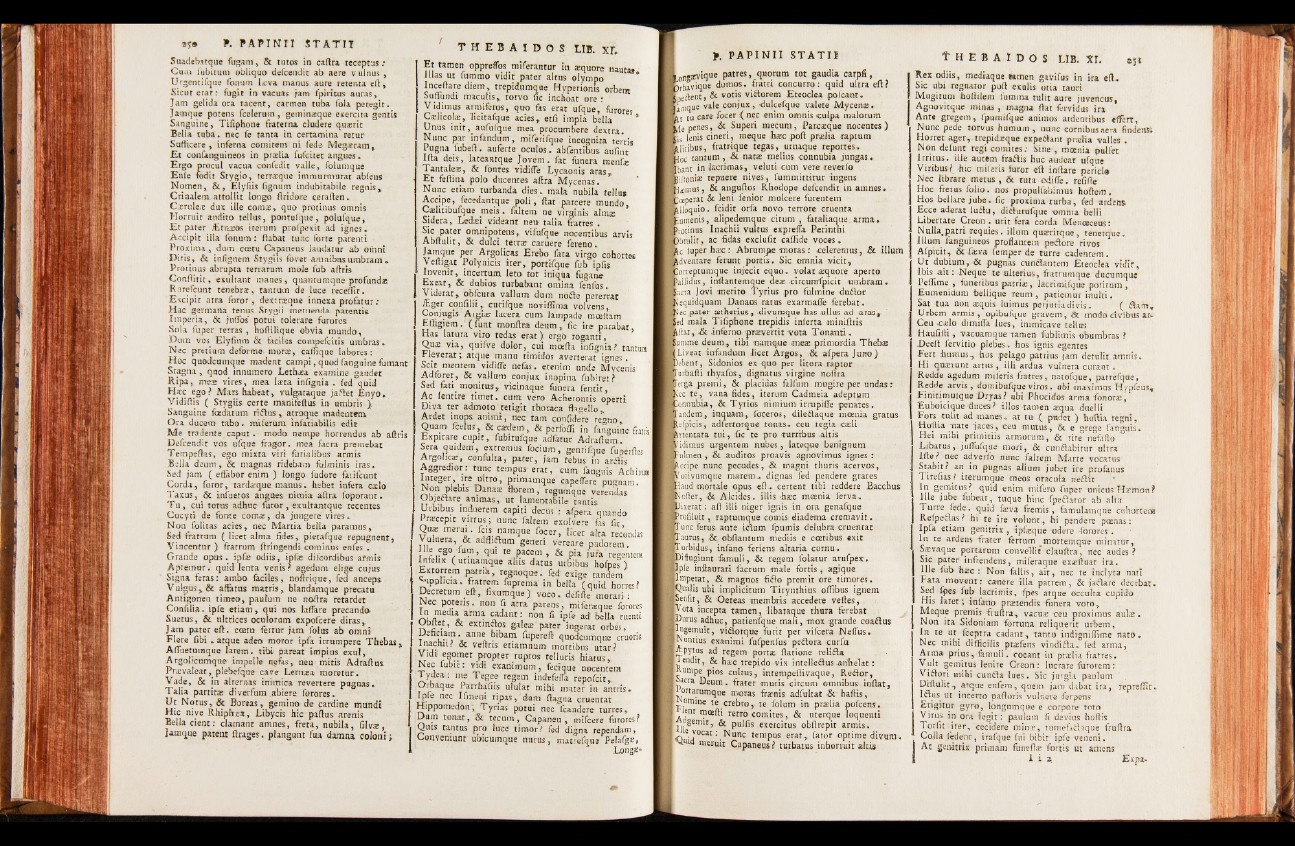 250 P. PAPINII STATII
Suadebatque fugam, & tutos in castra receptus:
Cum subitum obliquo descendit ab aere vulnus,
Urgentisque sonum leva manus aure retenta est,
Sicut erat: fugit in vacuas jam spiritus auras,
Jam gelida ora tacent, carmen tuba sola peregit.
Jamque potens scelerum, geminæque exercita gentis
Sanguine, Tisiphone fraterna cludere quærit
Bella tuba. nec se tanta in certamina retur
Sufficere, inferna comitem ni sede Megæram,
Et consanguineos in prælia suscitet angues.
Ergo procul vacua consedit valle, solumque
Ense fodit Stygio, terræque immurmurat absens
Nomen, &, Elysiis signum indubitabile regnis,
Crinalem attollit longo stridore cerasten.
Cæruleæ dux ille comæ, quo protinus omnis
Horruit audito tellus, pontusque, polusque,
Et pater Ætnæos iterum prospexit ad ignes.
Accipit illa sonum: stabat tunc forte parenti
Proxima, dum cœtu Capaneus laudatur ab omni
Ditis, & insignem Stygiis fovet amnibus umbram.
Protinus abrupta terrarum mole sub astris
Constitit, exultant manes, quantumque profundæ
Rarescunt tenebræ, tantum de luce recessit.
Excipit atra soror, dextræque innexa profatur:
Hac germana tenus Stygii metuenda parentis
Imperia, & jussos potui tolerare furores
Sola super terras, hostilique obvia mundo,
Dum vos Elysium & faciles compescitis umbras.
Nec pretium deforme moræ, cassique labores:
Hoc quodcumque madent campi, quod sanguine fumant
Stagna, quod innumero Lethæa examine gaudet
Ripa, meæ vires, mea læta insignia. sed quid
Hæc ego? Mars habeat, vulgataque jactet Enyo.
Vidistis (Stygiis certe manifestus in umbris)
Sanguine fœdatum rictus, atroque madentem
Ora ducem tabo. miserum insatiabilis edit
Me tradente caput.- modo nempe horrendus ab astris
Descendit vos usque fragor. mea sacra premebat
Tempestas, ego mixta viri furialibus armis
Bella deum, & magnas ridebam fulminis iras.
Sed jam (effabor enim) longo sudore fatiscunt
Corda, soror, tardæque manus. hebet infera cælo
Taxus, & insuetos angues nimia astra soporant.
Tu, cui totus adhuc furor, exultantque recentes
Cocyti de fonte comæ, da jungere vires.
Non solitas acies, nec Martia bella paramus,
Sed fratrum (licet alma fides, pietasque repugnent,
Vincentur) fratrum stringendi cominus enses.
Grande opus. ipsæ odiis, ipsæ discordibus armis
Aptemur. quid lenta venis? agedum elige cujus
Signa feras: ambo faciles, nostrique, sed anceps
Vulgus, & affatus matris, blandamque precatu
Antigonen timeo, paulum ne nostra retardet
Consilia. ipse etiam, qui nos lassare precando
Suetus, & ultrices oculorum exposcere diras,
Jam pater est. cœtu fertur jam solus ab omni
Flere sibi. atque adeo moror ipsa inrumpere Thebas,
Assuetumque larem. tibi pareat impius exul,
Argolicumque impelle nefas, neu mitis Adrastus
Prævaleat, plebesque cave Lernæa moretur.
Vade, & in alternas inimica revertere pugnas.
Talia partitæ diversum abiere sorores.
Ut Notus, & Boreas, gemino de cardine mundi
Hic nive Rhiphæa, Libycis hic pastus arenis
Bella cient: clamant amnes, freta, nubila, silvæ,
Jamque patent strages. plangunt sua damna coloni;
THEBAIDOS LIB. XI.
Et tamen oppressos miserantur in æquore nautas.
Illas ut summo vidit pater altus olympo
Incestare diem, trepidumque Hyperionis orbem
Suffundi maculis, torvo sic inchoat ore:
Vidimus armiferos, quo fas erat usque, furores,
Cælicolæ, licitasque acies, etsi impia bella
Unus init, aususque mea procumbere dextra.
Nunc par infandum, miserisque incognita terris
Pugna subest. auferte oculos. absentibus ausint
Ista deis, lateantque Jovem. sat funera mensæ
Tantaleæ, & sontes vidisse Lycaonis aras,
Et festina polo ducentes astra Mycenas.
Nunc etiam turbanda dies. mala nubila tellus
Accipe, secedantque poli, stat parcere mundo,
Cælitibusque meis. saltem ne virginis almæ
Sidera, Ledæi videant neu talia fratres.
Sic pater omnipotens, visusque nocentibus arvis
Abstulit, & dulci terræ caruere sereno.
Jamque per Argolicas Erebo sata virgo cohortes
Vestigat Polynicis iter, portisque sub ipsis
Invenit, incertum leto tot iniqua fugane
Exeat, & dubios turbabant omina sensus.
Viderat, obscura vallum dum nocte pererrat
Æger consilii, curisque novissima volvens,
Conjugis Argiæ lacera cum lampade mœstam
Effigiem. (sunt monstra deum, sic ire parabat,
Has latura viro tedas erat) ergo roganti,
Quæ via, quisve dolor, cui mœsta insignia? tantum
Fleverat; atque manu timidos averterat ignes.
Scit mentem vidisse nefas. etenim unde Mycenis
Adforet, & vallum conjux inopina subiret?
Sed fati monitus, vicinaque funera sentit,
Ac sentire timet. cum vero Acherontis operti
Diva ter admoto tetigit thoraca flagello,
Ardet inops animi, nec tam considere regno,
Quam scelus, & cædem, & perfossi in sanguine fratris
Expirare cupit, subitusque adfatur Adrastum.
Sera quidem, extremus socium, gentisque superstes
Argolicæ, consulta, pater, jam rebus in arctis
Aggredior: tunc tempus erat, cum sanguis Achivus
Integer, ire ultro, primamque capessere pugnam.
Non plebis Danaæ florem, regumque verendas
Objectare animas, ut lamentabile tantis
Urbibus induerem capiti decus: aspera quando
Præcepit virtus; nunc saltem exolvere fas sit,
Quæ merui. scis namque socer, licet alta recondas
Vulnera, & addictum generi vereare pudorem.
Ille ego sum, qui te pacem, & pia jura regentem
Infelix (utinamque aliis datus urbibus hospes)
Extorrem patria, regnoque. sed exige tandem
Supplicia. fratrem suprema in bella (quid horres?
Decretum est, fixumque) voco. desiste morari:
Nec poteris. non si atra parens, miseræque sorores
In media arma cadant: non si ipse ad bella ruenti
Obstet, & extinctos galeæ pater ingerat orbes,
Deficiam. anne bibam superest quodcumque cruoris
Inachii? & vestris etiamnum mortibus utar?
Vidi egomet propter ruptos telluris hiatus,
Nec subii: vidi exanimum, fecique nocentem
Tydea: me Tegee regem indefessa reposcit,
Orbaque Parrhasiis ululat mihi mater in antris.
Ipse nec Ismeni ripas, dum stagna cruentat
Hippomedon, Tyrias potui nec scandere turres,
Dum tonat, & tecum, Capaneu, miscere furores?
Quis tantus pro luce timor? sed digna rependam.
Conveniant ubicumque nurus, matresque Pelasgæ,
Longæ-
P. PAPINII STATII
Longævique patres, quorum tot gaudia carpsi,
Orbavique domos. fratri concurro: quid ultra est?
Spectent, & votis victorem Eteoclea poscant.
Jamque vale conjux, dulcesque valete Mycenæ.
At tu care socer (nec enim omnis culpa malorum
Me penes, & Superi mecum, Parcæque nocentes)
Sis lenis cineri, meque hæc post prælia raptum
Alitibus, fratrique tegas, urnaque reportes.
Hoc tantum, & natæ melius connubia jungas.
Ibant in lacrimas, veluti cum vere reverso
Bistoniæ tepuere nives, summittitur ingens
Hæmus, & angustos Rhodope descendit in amnes.
Cœperat & leni senior mulcere furentem
Alloquio. scidit orsa novo terrore cruenta
Eumenis, alipedemque citum, fataliaque arma.
Protinus Inachii vultus expressa Perinthi
Obtulit, ac fidas exclusit casside voces.
Ac super hæc: Abrumpe moras: celeremus, & illum
Adventare ferunt portis. Sic omnia vicit,
Correptumque injecit equo. volat æquore aperto
Pallidus, instantemque deæ circumspicit umbram.
Sacra Jovi merito Tyrius pro fulmine ductor
Nequidquam Danaos ratus exarmasse ferebat.
Nec pater æthereus, divumque has ullus ad aras,
Sed mala Tisiphone trepidis inserta ministris
Astat, & inferno prævertit vota Tonanti.
Summe deum, tibi namque meæ primordia Thebæ
(Liveat infandum licet Argos, & aspera Juno)
Debent, Sidonios ex quo per litora raptor
Turbasti thyasos, dignatus virgine nostra
Terga premi, & placidas falsum mugire per undas:
Nec te, vana fides, iterum Cadmeia adeptum
Connubia, & Tyrios nimium irrupisse penates.
Tandem, inquam, soceros, dilectaque mœnia gratus
Respicis, adsertorque tonas. ceu regia cæli
Attentata tui, sic te pro turribus altis
Vidimus urgentem nubes, lateque benignum
Fulmen, & auditos proavis agnovimus ignes:
Accipe nunc pecudes, & magni thuris acervos,
Votivumque marem. dignas sed pendere grates
Haud mortale opus est. certent tibi reddere Bacchus
Noster, & Alcides. illis hæc mœnia serva.
Dixerat: ast illi niger ignis in ora genasque
Prosiluit, raptumque comis diadema cremavit.
Tunc ferus ante ictum spumis delubra cruentat
Taurus, & obstantum mediis e cœtibus exit
Turbidus, insano feriens altaria cornu.
Diffugiunt famuli, & regem solatur aruspex.
Ipse instaurari sacrum male fortis, agique
Imperat, & magnos ficto premit ore timores.
Qualis ubi implicitum Tirynthius ossibus ignem
Sensit, & Oeteas membris accedere vestes,
Vota incepta tamen, libataque thura ferebat
Durus adhuc, patiensque mali, mox grande coactus
Ingemuit, victorque furit per viscera Nessus.
Nuntius exanimi suspensus pectora cursu
Æpytus ad regem portæ statione relicta
Tendit, & hæc trepido vix intellectus anhelat:
Rumpe pios cultus, intempestivaque, Rector,
Sacra Deum. frater muris circum omnibus instat,
Portarumque moras frænis adsultat & hastis,
Nomine te crebro, te solum in prælia poscens.
Flent mœsti retro comites, & uterque loquenti
Adgemit, & pulsis exercitus obstrepit armis.
Ille vocat: Nunc tempus erat, sator optime divum.
Quid meruit Capaneus? turbatus inhorruit altis
THEBAIDOS LIB. XI. 251
Rex odiis, mediaque tamen gavisus in ira est.
Sic ubi regnator post exulis otia tauri
Mugitum hostilem summa tulit aure juvencus,
Agnovitque minas, magna stat fervidus ira
Ante gregem, spumisque animos ardentibus effert,
Nunc pede torvus humum, nunc cornibus aera findens:
Horret ager, trepidæque expectant prælia valles.
Non desunt regi comites: Sine, mœnia pulset
Irritus. ille autem fractis huc audeat usque
Viribus? hic miseris furor est instare periclo
Nec librare metus, & tuta odisse. resiste
Hoc fretus solio. nos propulsabimus hostem.
Hos bellare jube. sic proxima turba, sed ardens
Ecce aderat luctu, dicturusque omnia belli
Libertate Creon. urit fera corda Menœceus:
Nulla patri requies. illum quæritque, tenetque.
Illum sanguineos proflantem pectore rivos
Aspicit, & sæva semper de turre cadentem.
Ut dubium, & pugnas cunctantem Eteoclea vidit,
Ibis ait: Neque te ulterius, fratrumque ducumque
Pessime, funeribus patriæ, lacrimisque potitum,
Eumenidum bellique reum, patiemur inulti.
Sat tua non æquis luimus perjuria divis.
Urbem armis, opibusque gravem, & modo civibus arctam,
Ceu cælo dimissa lues, inimicave tellus
Hausisti, vacuumque tamen sublimis obumbras?
Deest servitio plebes. hos ignis egentes
Fert humus, hos pelago patrius jam detulit amnis.
Hi quærunt artus, illi ardua vulnera curant.
Redde agedum miseris fratres, natosque, patresque,
Redde arvis, domibusque viros. ubi maximus Hypseus,
Finitimusque Dryas? ubi Phocidos arma sonoræ,
Euboicique duces? illos tamen æqua duelli
Fors tulit ad manes. at tu (pudet) hostia regni,
Hostia nate jaces, ceu mutus, & e grege sanguis.
Hei mihi primitiis armorum, & rite nefasto
Libatus, jussusque mori, & cunctabitur ultra
Iste? nec adverso nunc saltem Marte vocatus
Stabit? an in pugnas alium jubet ire profanus
Tiresias? iterumque meos oracula nectit
In gemitus? quid enim misero super unicus Hæmon?
Ille jube subeat, tuque hinc spectator ab alta
Turre sede. quid sæva fremis, famulamque cohortem
Respectas? hi te ire volunt, hi pendere pœnas:
Ipsa etiam genitrix, ipsæque odere sorores.
In te ardens frater ferrum mortemque minatur,
Sævaque portarum convellit claustra, nec audes?
Sic pater infrendens, miseraque exæstuat ira.
Ille sub hæc: Non fallis, ait, nec te inclyta nati
Fata movent: canere illa patrem, & jactare decebat.
Sed spes sub lacrimis. spes atque occulta cupido
His latet; insano prætendis funera voto,
Meque premis frustra, vacuæ ceu proximus aulæ.
Non ita Sidoniam fortuna reliquerit urbem,
In te ut sceptra cadant, tanto indignissime nato.
Nec mihi difficilis præsens vindicta. sed arma,
Arma prius, famuli. coeant in prælia fratres.
Vult gemitus lenire Creon: lucrare furorem:
Victori mihi cuncta lues. Sic jurgia paulum
Distulit, atque ensem, quem jam dabat ira, repressit.
Ictus ut incerto pastoris vulnere serpens
Erigitur gyro, longumque e corpore toto
Virus in ora legit: paulum si devius hostis
Torsit iter, cecidere minæ, tumefactaque frustra
Colla sedent, irasque sui bibit ipse veneni.
At genitrix primam funestæ sortis ut amens
I i 2 Expa-